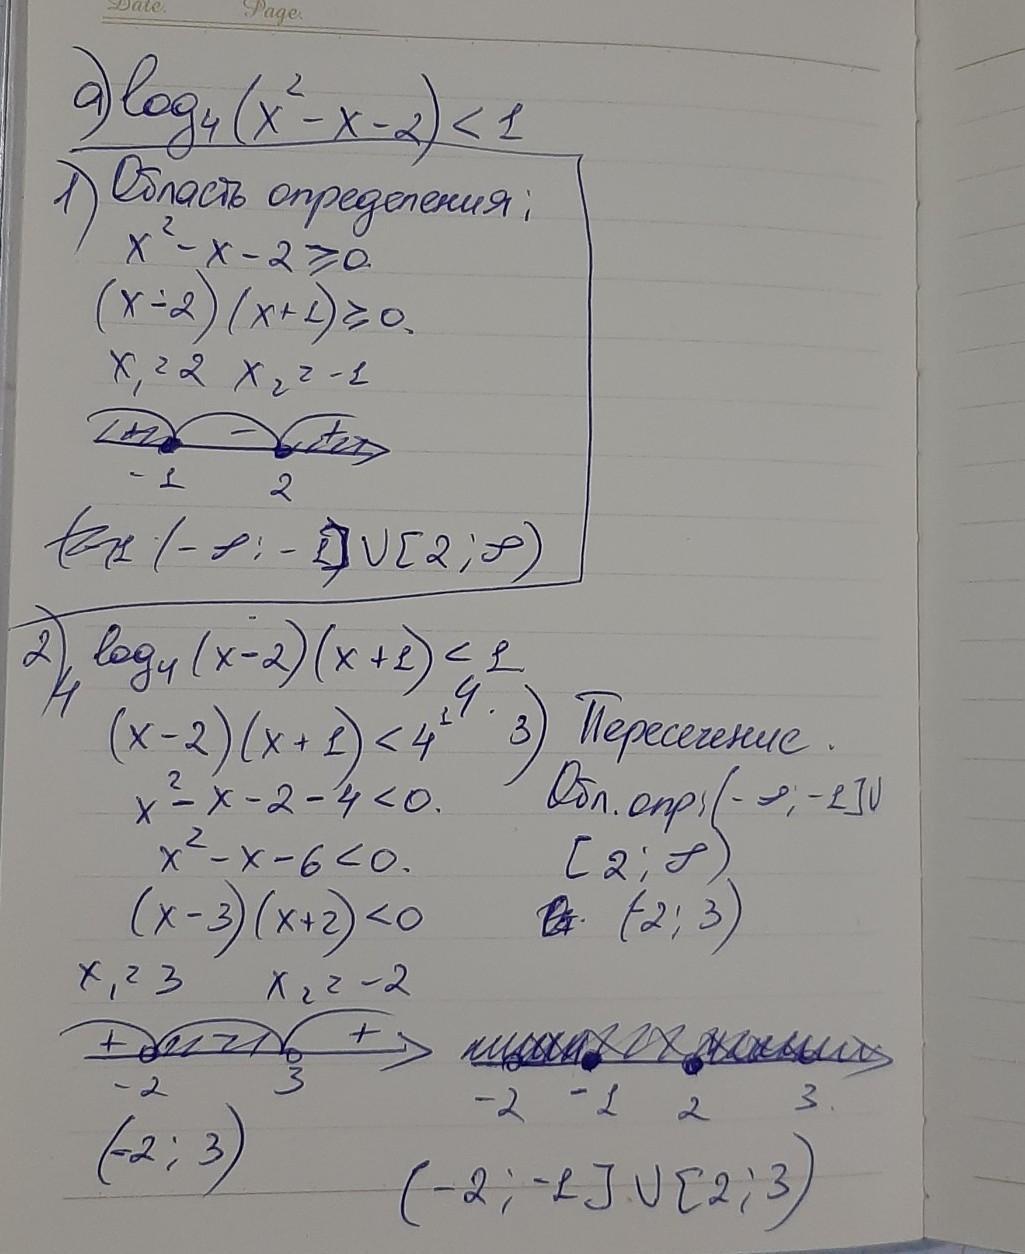 Date. Page.
а) log₄(x² - x - 2) < 1
1) Область определения;
x² - x - 2 ≥ 0.
(x - 2)(x + 1) ≥ 0.
x₁ = 2 x₂ = -1
+ - +
-1 2
(-∞; -1] ∪ [2; ∞)
2) log₄(x - 2)(x + 1) < 1
(x - 2)(x + 1) < 4¹
x² - x - 2 - 4 < 0.
x² - x - 6 < 0.
(x - 3)(x + 2) < 0
x₁ = 3 x₂ = -2
+ - +
-2 3
(-2; 3)
3) Пересечение.
Обл. опр: (-∞; -1] ∪
[2; ∞)
(-2; 3)
-2 -1 2 3.
(-2; -1] ∪ [2; 3)